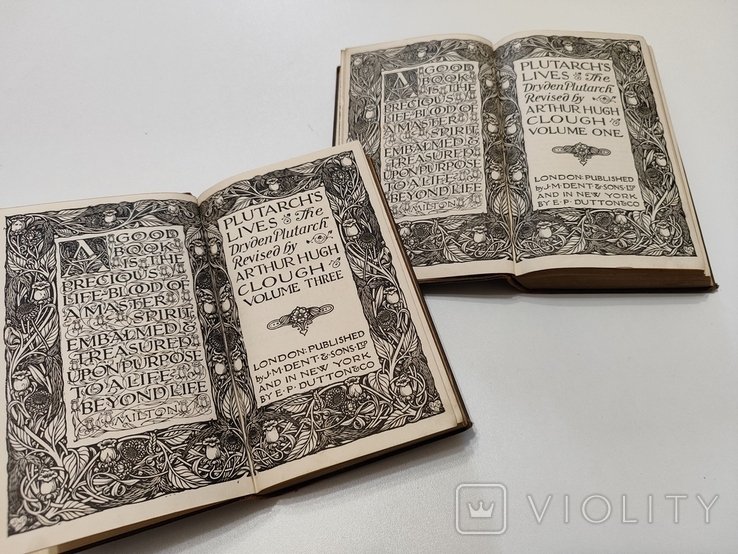 A GOOD
BOOK
IS THE
PRECIOUS
LIFE-BLOOD OF
A MASTER
SPIRIT,
EMBALMED &
TREASURED
UPON PURPOSE
TO A LIFE
BEYOND LIFE
MILTON
PLUTARCH'S
LIVES The
Dryden Plutarch
Revised by
ARTHUR HUGH
CLOUGH
VOLUME THREE
LONDON: PUBLISHED
by J·M·DENT·&·SONS·LTD
AND IN NEW YORK
BY E·P·DUTTON & CO
A GOOD
BOOK
IS THE
PRECIOUS
LIFE-BLOOD OF
A MASTER
SPIRIT,
EMBALMED &
TREASURED
UPON PURPOSE
TO A LIFE
BEYOND LIFE
MILTON
PLUTARCH'S
LIVES The
Dryden Plutarch
Revised by
ARTHUR HUGH
CLOUGH
VOLUME ONE
LONDON: PUBLISHED
by J·M·DENT·&·SONS·LTD
AND IN NEW YORK
BY E·P·DUTTON & CO
VIOLITY